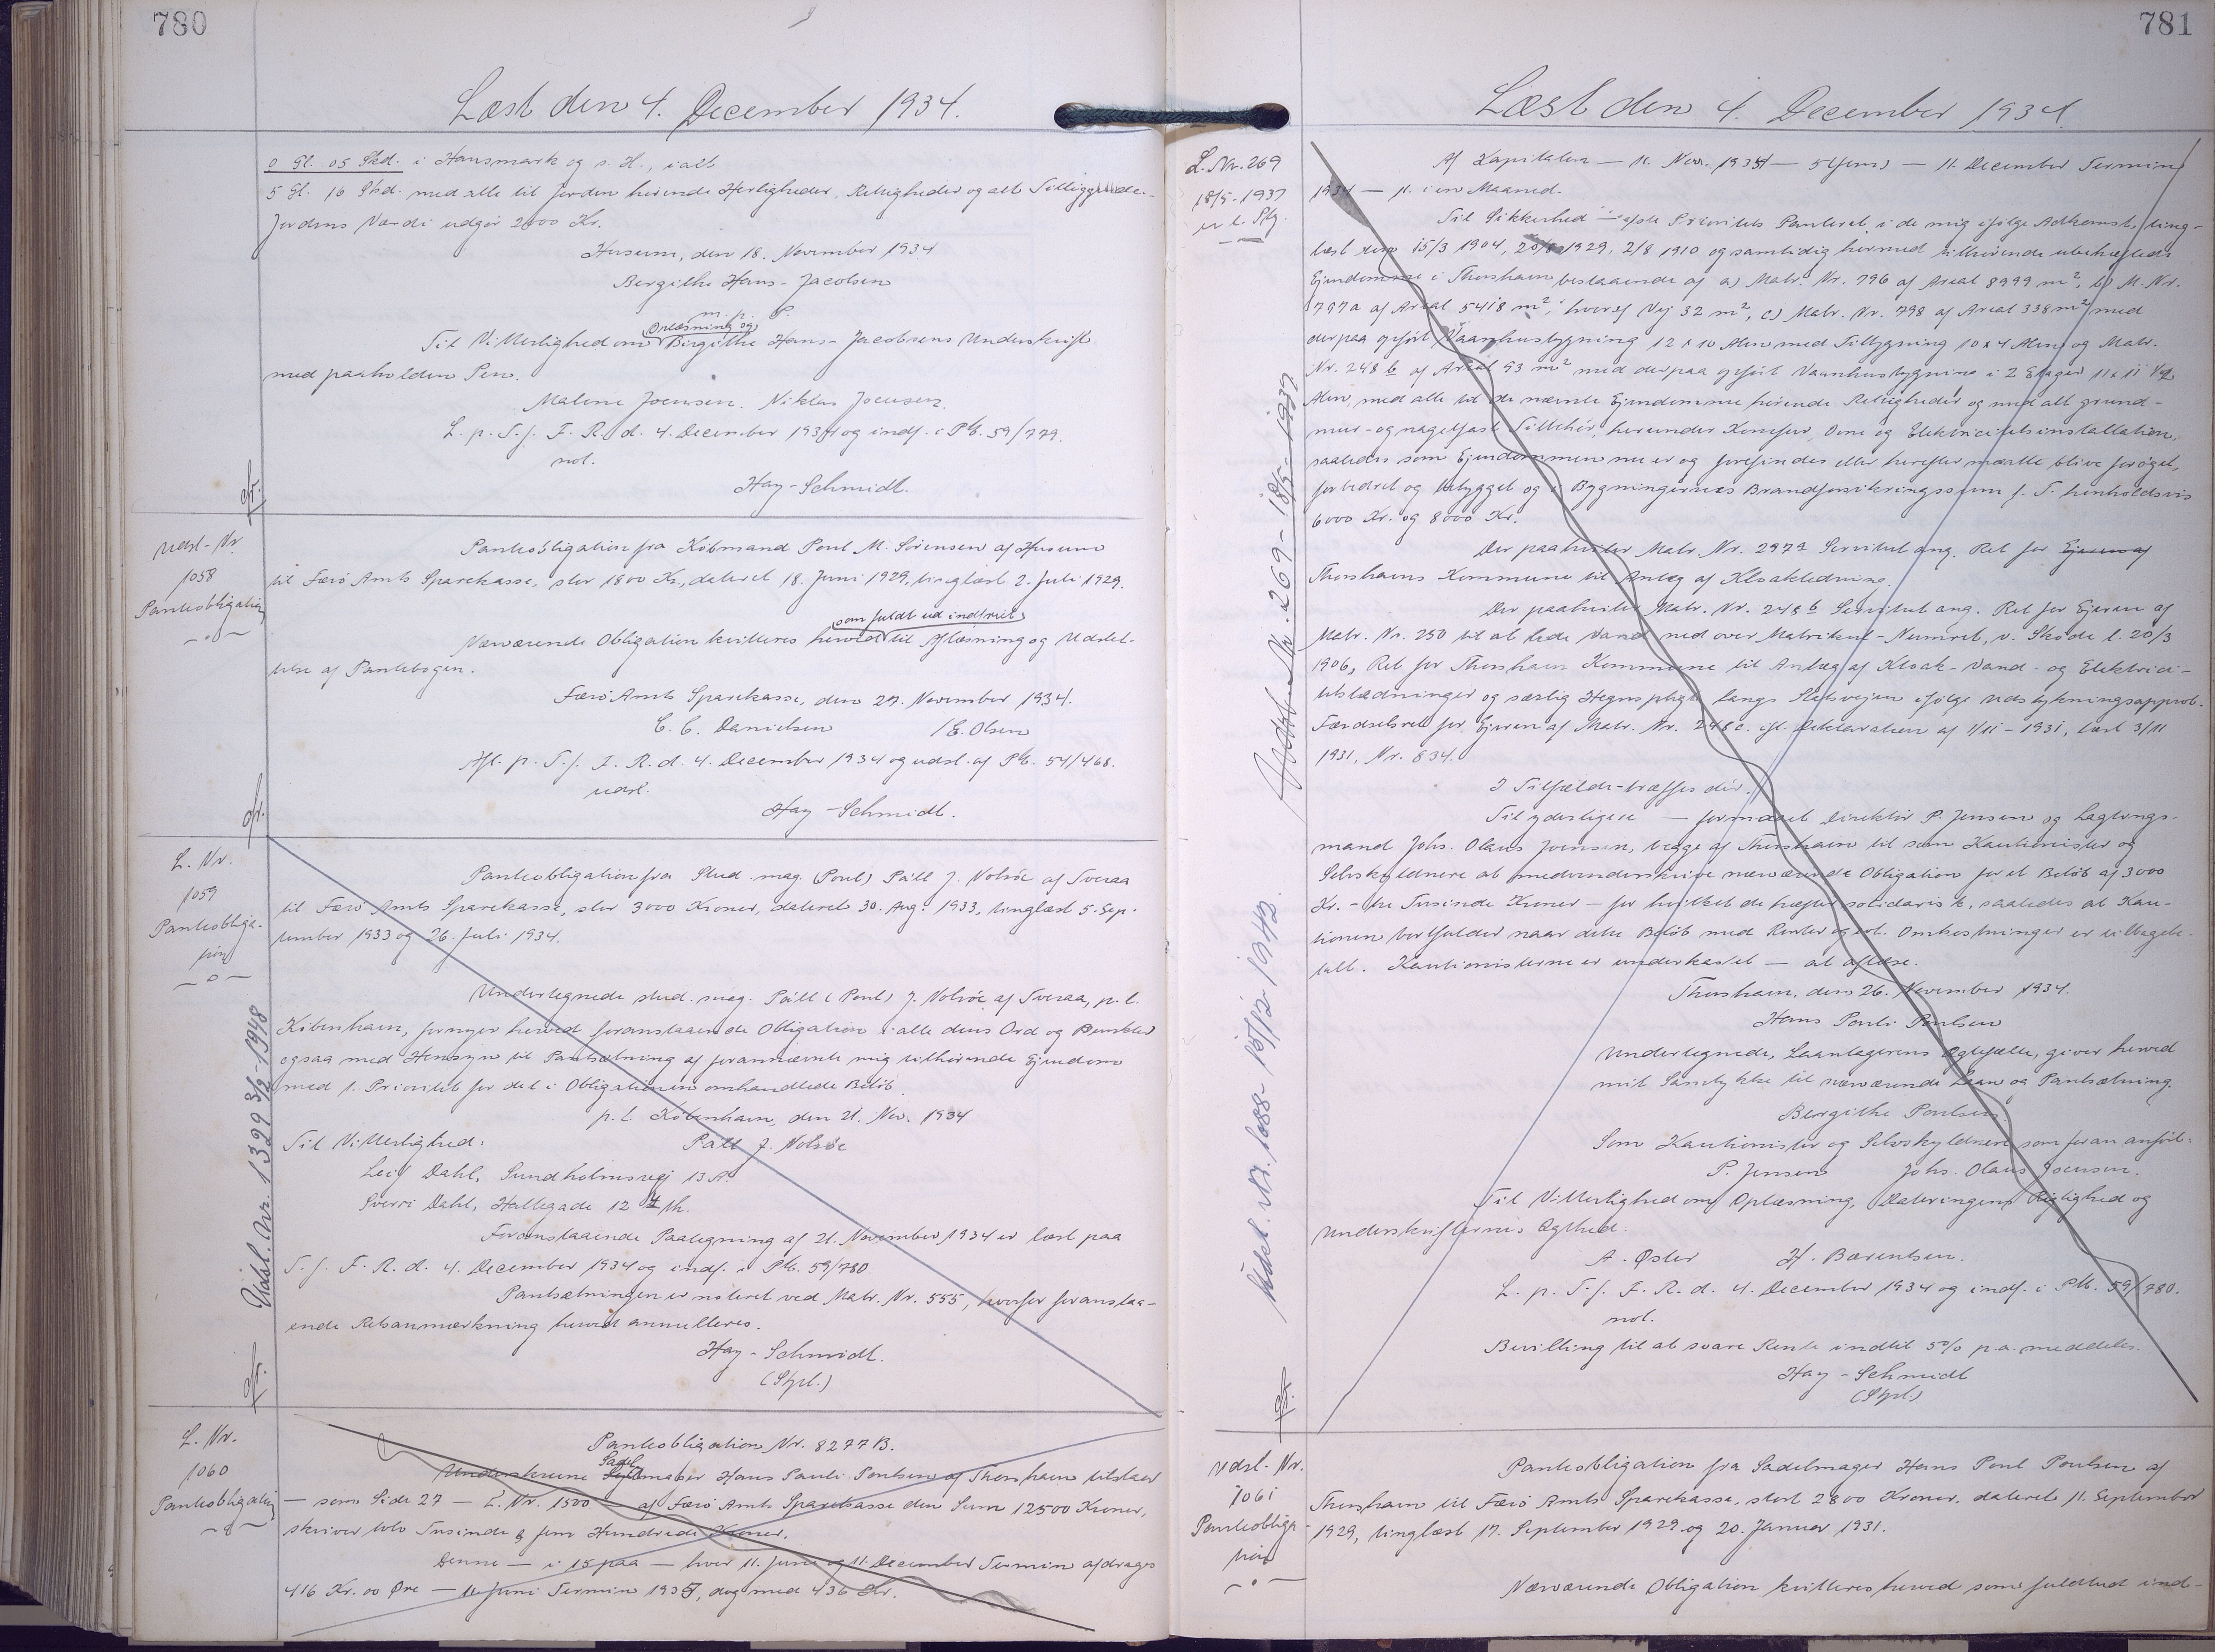 780
Læst den 4. December 1934.
0 Gl. 05 Skd. i Hansmark og s. H., ialt
5 Gl. 16 Skd. med alle til Jorden hørende Herligheder, Rettigheder og alt Tilliggende.
Jordens Værdi udgør 2000 Kr.
Husum, den 18. November 1934
Bergithe Hans-Jacobsen
m. p. P.
Oplæsning og
Til Vitterlighed om Birgithe Hans-Jacobsens Underskrift
med paaholden Pen.
Malene Joensen. Niklas Joensen.
L. p. T. f. F. R. d. 4. December 1934 og indf. i Pb. 59/779.
not.
Hay-Schmidt.
Udsl-Nr.
1058
Panteobligation
Panteobligation fra Købmand Poul M. Sørensen af Husum
til Færø Amts Sparekasse, stor 1800 Kr., dateret 18. Juni 1929, tinglæst 2. Juli 1929.
som fuldt ud indfriet
Nærværende Obligation kvitteres herved til Aflæsning og Udslet-
telse af Pantebogen.
Færø Amts Sparekasse, den 27. November 1934.
C. C. Danielsen /E. Olsen
Afl. p. T. f. F. R. d. 4. December 1934 og udsl. af Pb. 54/468.
udsl.
Hay-Schmidt.
L. Nr.
1059
Panteobliga-
tion
Udsl. Nr. 1329 3/12-1948
Panteobligation fra Stud. mag. (Poul) Páll J. Nolsøe af Tveraa
til Færø Amts Sparekasse, stor 3000 Kroner, dateret 30. Aug. 1933, tinglæst 5. Sep-
tember 1933 og 26. Juli 1934.
Undertegnede stud. mag. Páll (Poul) J. Nolsøe af Tveraa, p. t.
København, fornyer herved foranstaaende Obligation i alle dens Ord og Punkter
ogsaa med Hensyn til Pantsætning af forannævnte mig tilhørende Ejendom
med 1. Prioritet for det i Obligationen omhandlede Beløb.
p. t. København, den 21. Nov. 1934
Til Vitterlighed: Páll J. Nolsøe
Leif Dahl, Sundholmsvej 13 A.
Sverri Dahl, Hallegade 12 4 th.
Foranstaaende Paategning af 21. November 1934 er læst paa
T. f. F. R. d. 4. December 1934 og indf. i Pb. 59/780
Pantsætningen er noteret ved Matr. Nr. 555, hvorfor foranstaa-
ende Retsanmærkning herved annulleres.
Hay-Schmidt.
(Stpl.)
L. Nr.
1060
Panteobligation
Panteobligation Nr. 8277 B.
Sadel
Underskrevne mager Hans Pauli Poulsen af Thorshavn tilstaar
— som Side 27 — L. Nr. 1500 — af Færø Amts Sparekasse den Sum 12500 Kroner,
skriver tolv Tusinde og fem Hundrede Kroner.
Denne — i 15 paa — hver 11. Juni og 11. December Termin afdrages
416 Kr. 00 Øre — 11. Juni Termin 1935, dog med 436 Kr.
781
Læst den 4. December 1934.
L. Nr. 269
18/5-1937
Udsl. Nr. 269 - 18/5-1937
Udsl. Nr. 1088 15/12-1942.
Af Kapitalen — 11. Nov. 1934 — 5 (fem) — 11. December Termin
1934 — 11. i en Maaned.
Til Sikkerhed — Prioritets Panteret i de mig ifølge Adkomst, ting-
læst den 15/3 1904, 1929, 2/8 1910 og samtidig hermed tilhørende ubehæftede
Ejendomme i Thorshavn bestaaende af a) Matr. Nr. 796 af Areal 8999 m², b) M. Nr.
797a af Areal 5418 m², hvoraf Vej 32 m², c) Matr. Nr. 798 af Areal 338 m² med
derpaa opført Vaanhusbygning 12 x 10 Alen med Tilbygning 10 x 4 Alen og Matr.
Nr. 248 b af Areal 93 m² med derpaa opført Vaanhusbygning i 2 Etager 11 x 11 1/2
Alen, med alle til de nævnte Ejendomme hørende Rettigheder og med alt grund-
mur- og nagelfast Tilbehør, herunder Komfur, Ovne og Elektricitetsinstallation,
saaledes som Ejendommen nu er og forefindes eller herefter maatte blive forøget,
forbedret og bebygget og i Bygningernes Brandforsikringssum f. T. henholdsvis
6000 Kr. og 8000 Kr.
Der paahviler Matr. Nr. 297a Servitut ang. Ret for Ejeren af
Thorshavns Kommune til Anlæg af Kloakledning.
Der paahviler Matr. Nr. 248 b Servitut ang. Ret for Ejeren af
Matr. Nr. 250 til at lede Vand ned over Matrikul-Numret, v. Skøde l. 20/3
1906, Ret for Thorshavn Kommune til Anlæg af Kloak- Vand- og Elektrici-
tetsledninger og særlig Hegnspligt langs Stisvejen ifølge Udstykningsapprob.
Færdselsret for Ejeren af Matr. Nr. 248c. ifl. Deklaration af 1/11-1931, læst 3/11
1931, Nr. 834.
I Tilfælde-træffes dér.
Til yderligere — formaaet Direktør P. Jensen og Lagtings-
mand Johs. Olaus Joensen, begge af Thorshavn til som Kautionister og
Selvskyldnere at medunderskrive nærværende Obligation for et Beløb af 3000
Kr. - tre Tusinde Kroner — for hvilket de hæfter solidarisk, saaledes at Kau-
tionen bortfalder naar dette Beløb med Renter og evt. Omkostninger er tilbagebe-
talt. Kautionisterne er underkastet — at aflæse.
Thorshavn, den 26. November 1934.
Hans Pauli Poulsen
Undertegnede, Laantagerens Ægtefælle, giver herved
mit Samtykke til nærværende Laan og Pantsætning.
Bergithe Poulsen
Som Kautionister og Selvskyldnere som foran anført:
P. Jensen Johs. Olaus Joensen.
Til Vitterlighed om Oplæsning, Dateringens Rigtighed og
Underskrifternes Ægthed:
A. Øster H. Bærentsen.
L. p. T. f. F. R. d. 4. December 1934 og indf. i Pb. 59/780.
not.
Bevilling til at svare Rente indtil 5% p.a. meddeles.
Hay-Schmidt
(Stpl.)
Udsl-Nr.
1061
Panteobliga-
tion
Panteobligation fra Sadelmager Hans Poul Poulsen af
Thorshavn til Færø Amts Sparekasse, stort 2800 Kroner, dateret 11. September
1929, tinglæst 17. September 1929 og 20. Januar 1931.
Nærværende Obligation kvitteres herved som fuldtud ind-